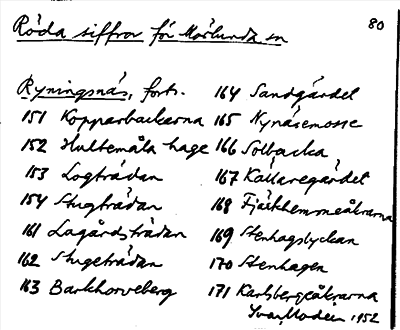 80
Röda siffror för Mörlunda sn
Ryningsnäs, forts.
151 Kopparbackarna
152 Hultemåla hage
153 Logträdan
154 Stugträdan
161 Lagårdsträdan
162 Stugeträdan
163 Barkhorveberg
164 Sandgärdet
165 Nynäsemosse
166 Solbacka
167 Källaregärdet
168 Fjärkhemmeåkrarna
169 Stenhagslyckan
170 Stenhagen
171 Karlsbergsåkrarna
Yvar Modéer 1952